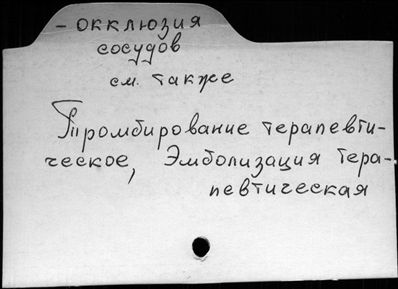 - окклюзия
сосудов
см. также
Тромбирование терапевти-
ческое, Эмболизация тера-
певтическая